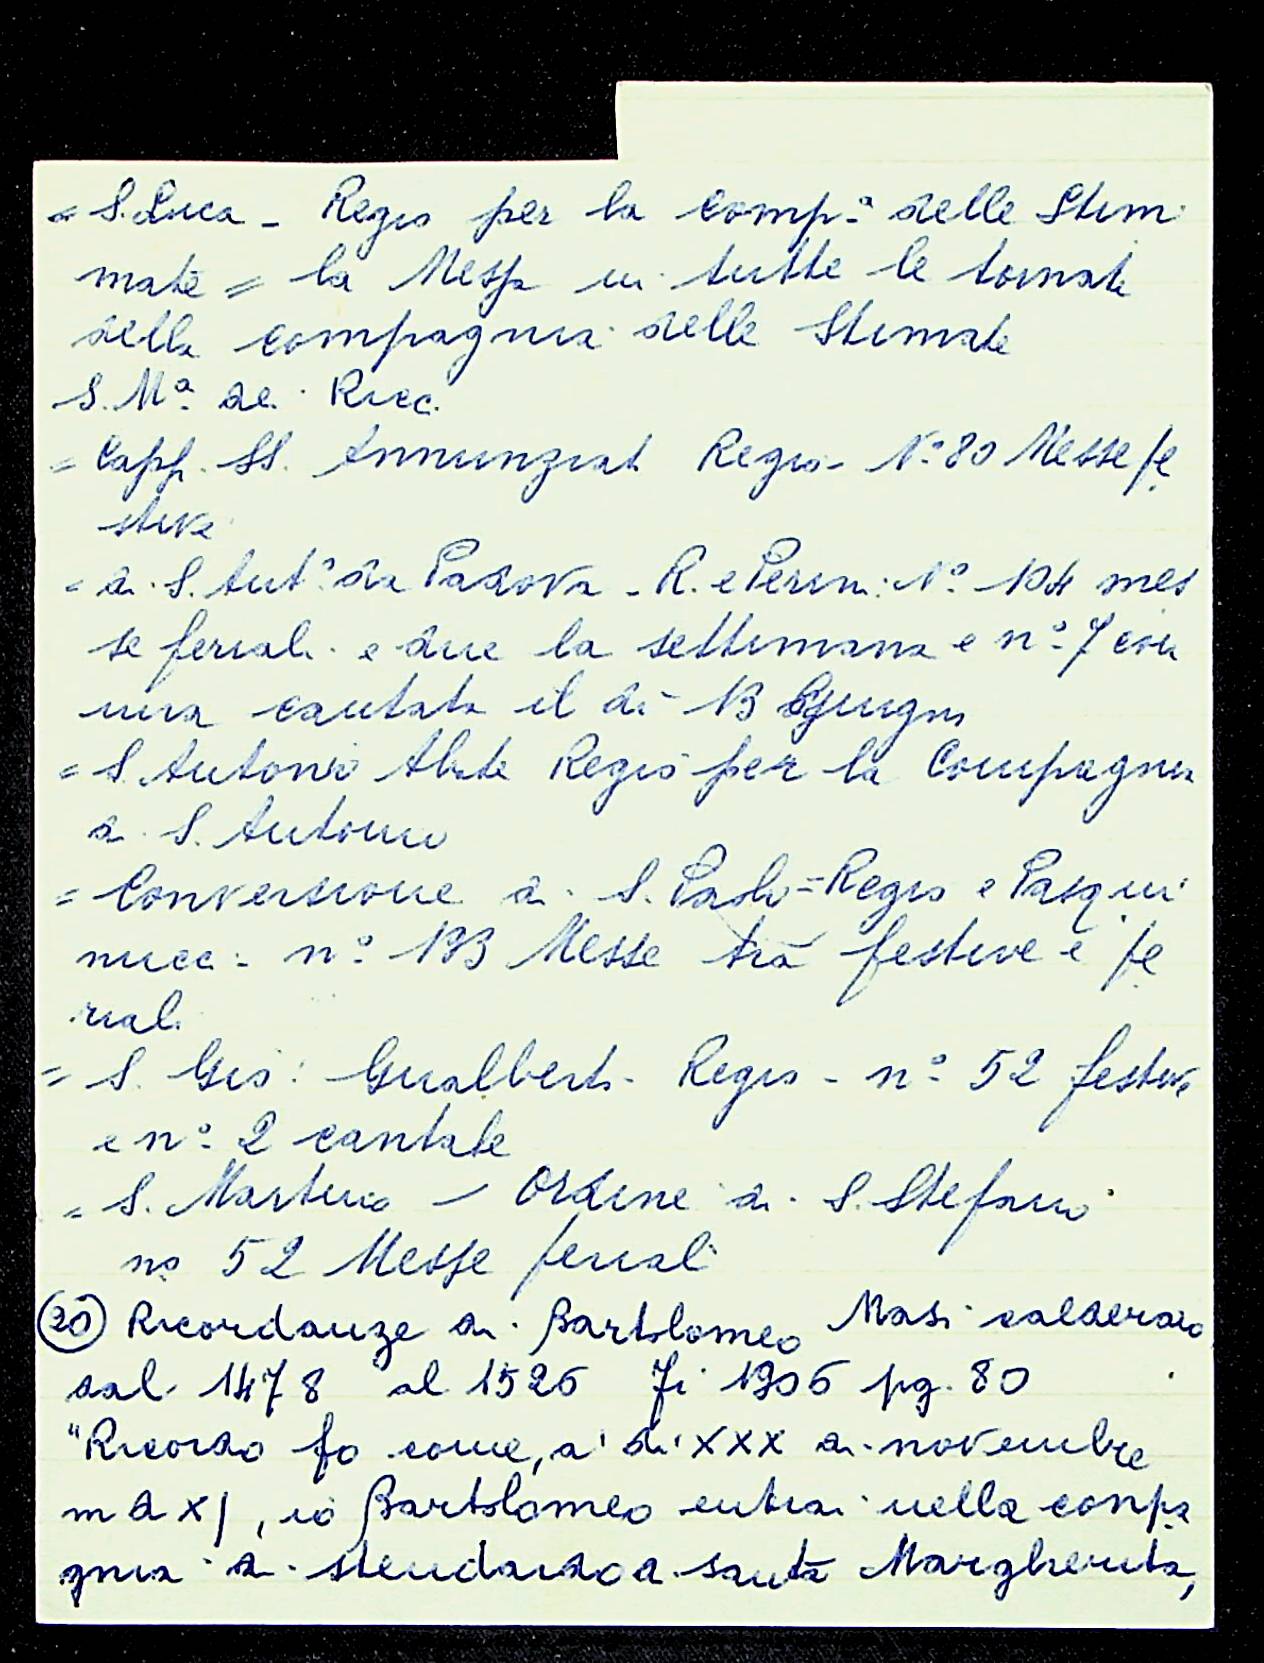 = S. Luca - Regio per la comp.ª delle Stim
mate = la Messa in tutte le tornate
della compagnia delle Stimate
S. Mª de Ricc.
= Capp. SS. Annunziat Regio - N.º 80 Messe fe
stive
= di S. Ant.º da Padova - R. e Peren: N.º 104 mes
se feriali e due la settimana e n.º 7 con
una cantata il di 13 Giugno
= S. Antonio Abate Regio per la Compagnia
di S. Antonio
= Conversione di S. Paolo = Regio e Pasqui
nucci - n.º 193 Messe tra festive e fe
riali
= S. Gio: Gualberto - Regio - n.º 52 festive
e n.º 2 cantate
= S. Martino - Ordine di S. Stefano
nº 52 Messe feriali
(20) Ricordanze di Bartolomeo Masi calderaio
dal 1478 al 1526 Fi 1906 pg. 80
"Ricordo fo come, a' di' XXX di novembre
m d x j, io Bartolomeo entrai nella conpa
gnia di stendardo di santa Margherita,